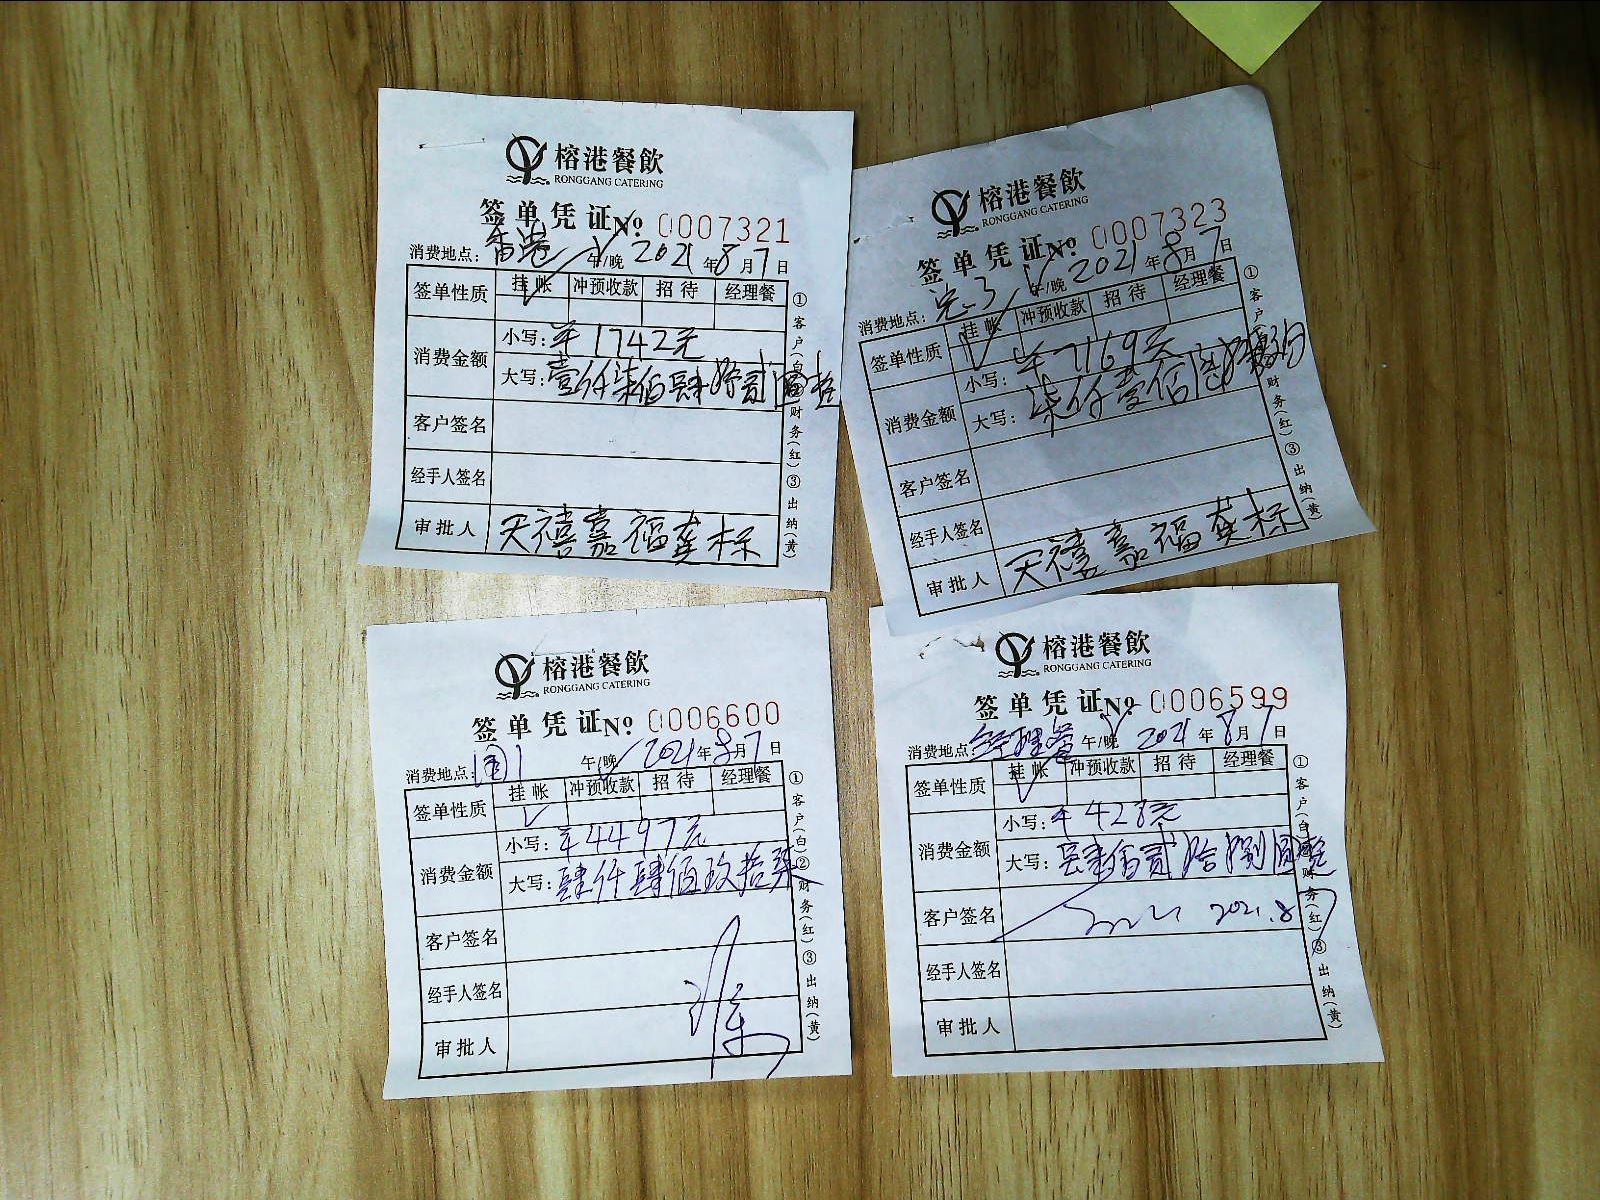 榕港餐飲
RONGGANG CATERING
签单凭证 No. 0007321
消费地点：香港 午/晚 2021年8月7日
签单性质 挂帐 冲预收款 招待 经理餐
消费金额 小写：¥1742元
大写：壹仟柒佰肆拾贰圆整
客户签名
经手人签名
审批人 天禧嘉福龚标
①客户(白)②财务(红)③出纳(黄)
榕港餐飲
RONGGANG CATERING
签单凭证 No. 0007323
消费地点： 午/晚 2021年8月7日
签单性质 挂帐 冲预收款 招待 经理餐
消费金额 小写：¥7169元
大写：柒仟壹佰
客户签名
经手人签名
审批人 天禧嘉福龚标
①客户 财务(红)③出纳(黄)
榕港餐飲
RONGGANG CATERING
签单凭证 No. 0006600
消费地点： 午/晚 2021年8月7日
签单性质 挂帐 冲预收款 招待 经理餐
消费金额 小写：¥4497元
大写：肆仟肆佰玖拾柒
客户签名
经手人签名
审批人
①客户(白)②财务(红)③出纳(黄)
榕港餐飲
RONGGANG CATERING
签单凭证 No. 0006599
消费地点：经理餐 午/晚 2021年8月7日
签单性质 挂帐 冲预收款 招待 经理餐
消费金额 小写：¥428元
大写：肆佰贰拾捌圆整
客户签名 2021.8.7
经手人签名
审批人
①客户(白) 财务(红)③出纳(黄)